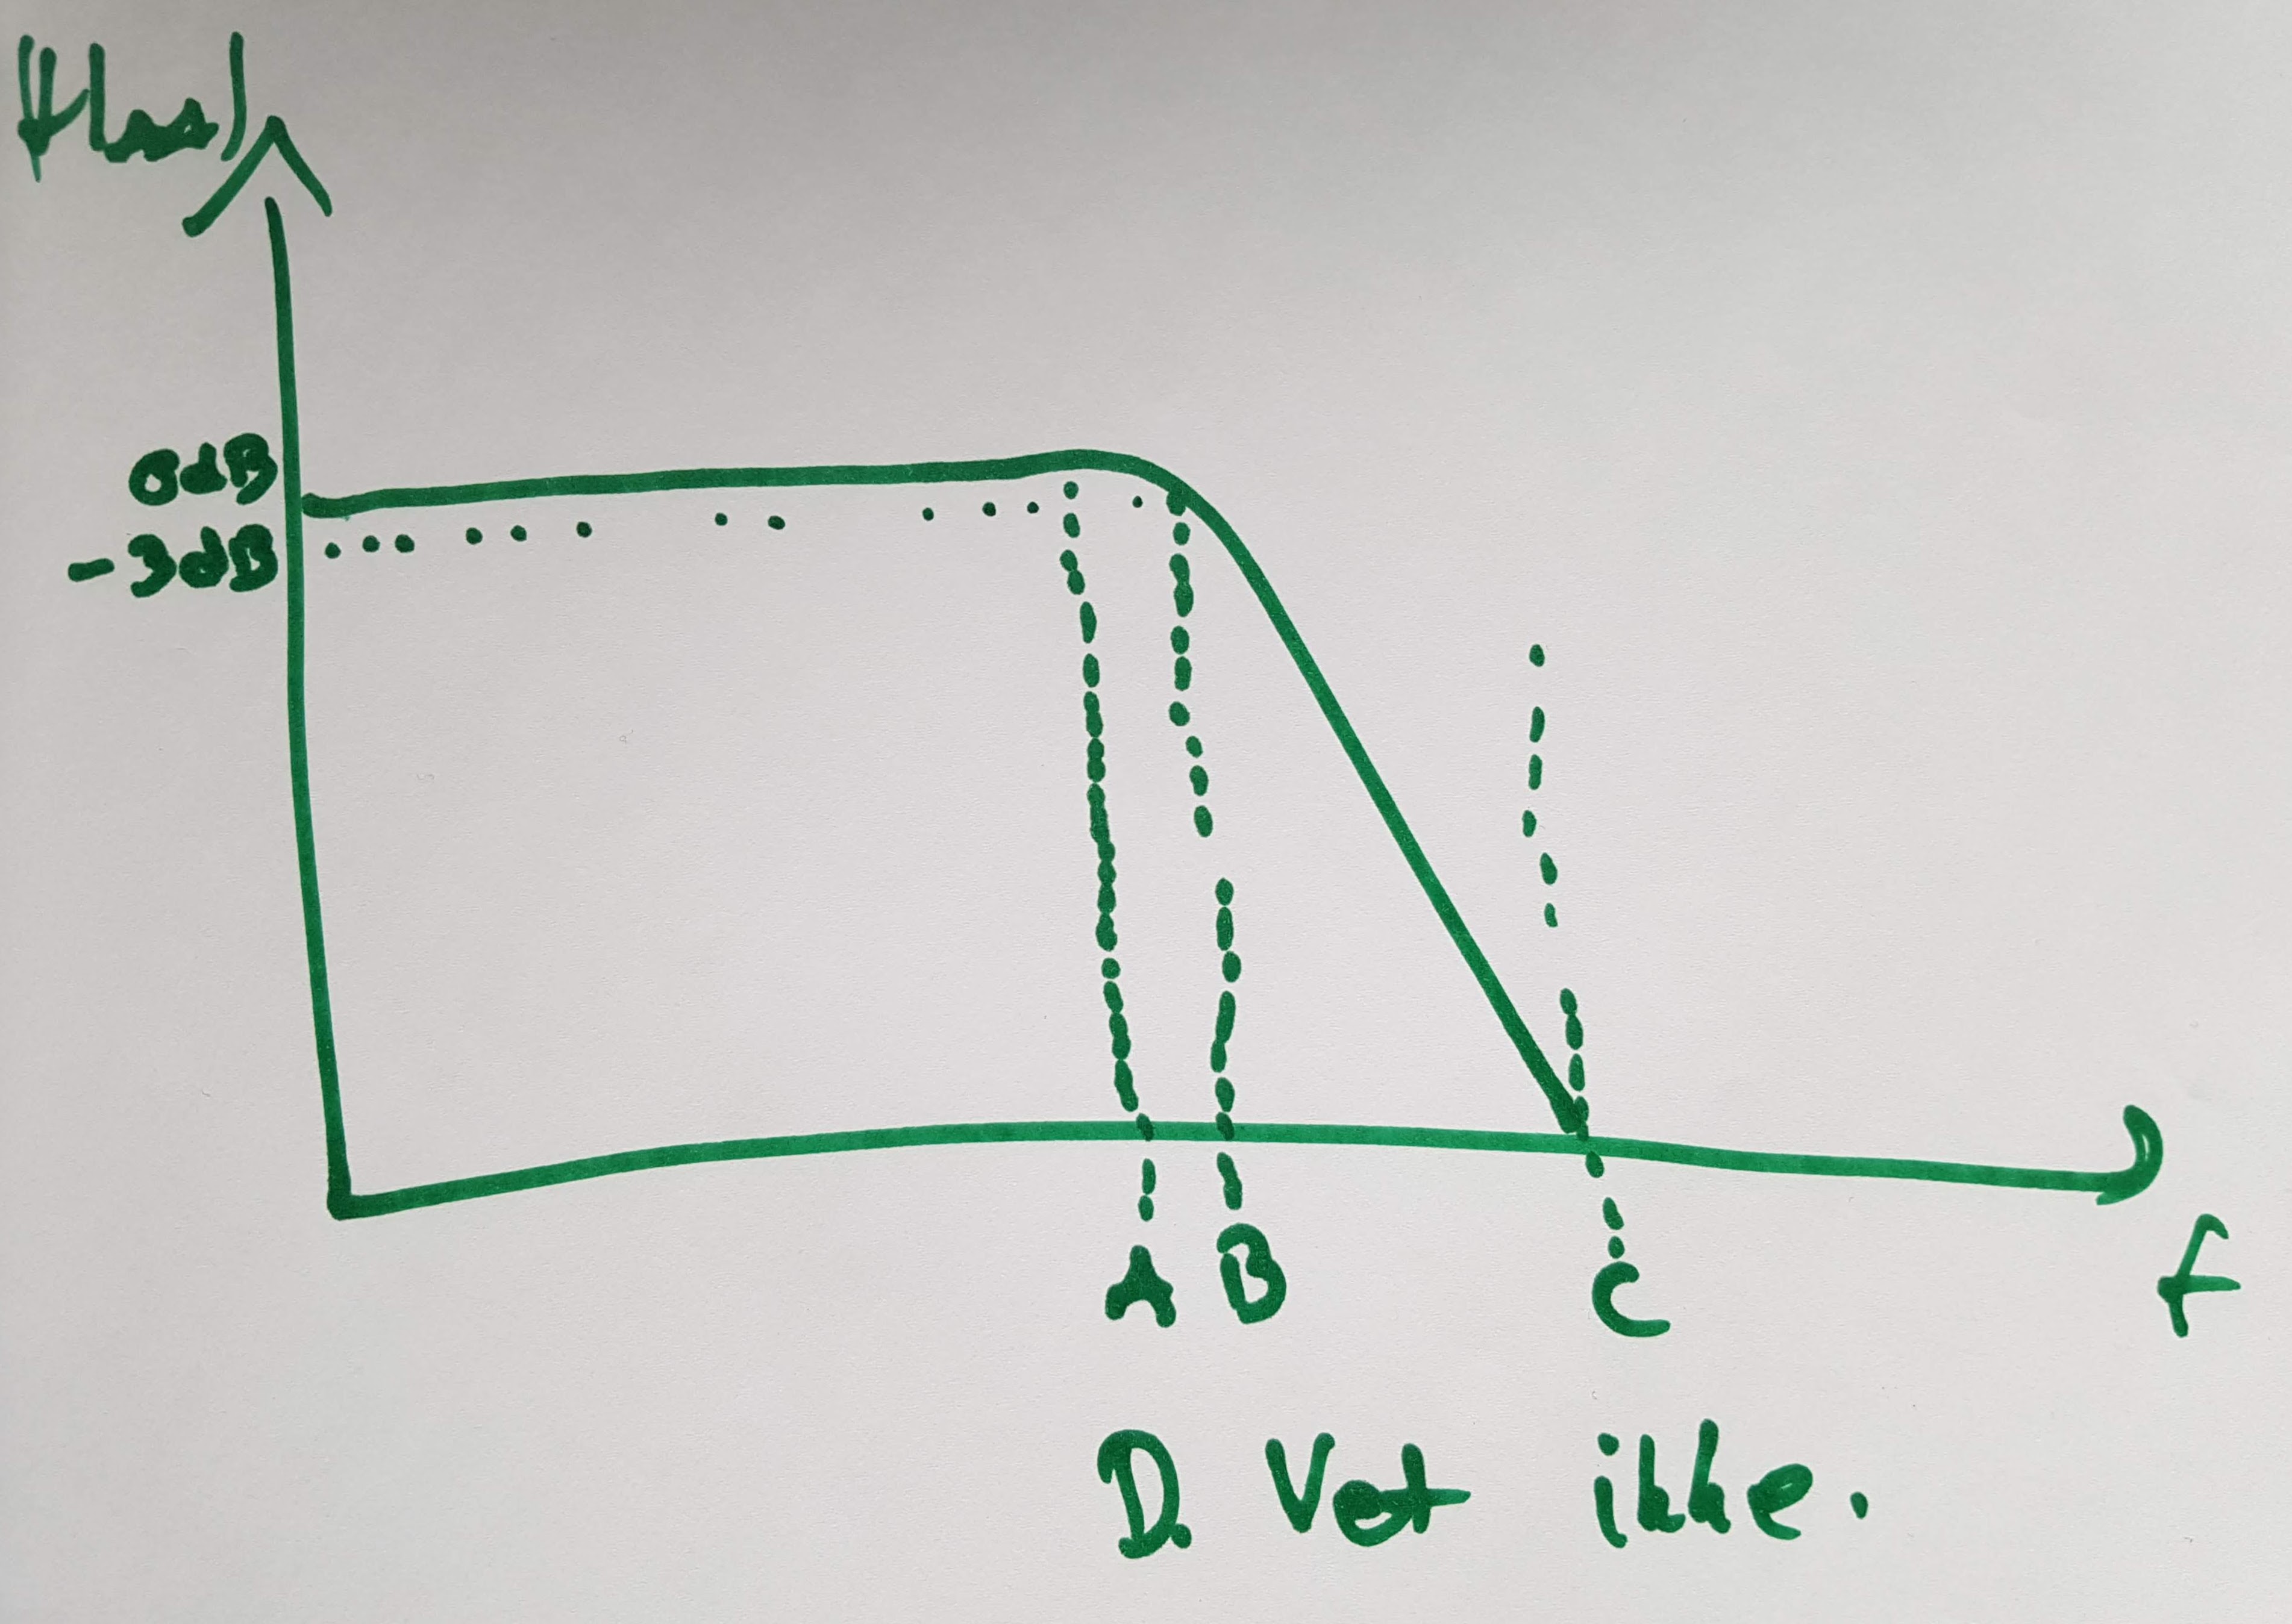 H(ω)
0dB
-3dB
A B C
f
D. Vet ikke.